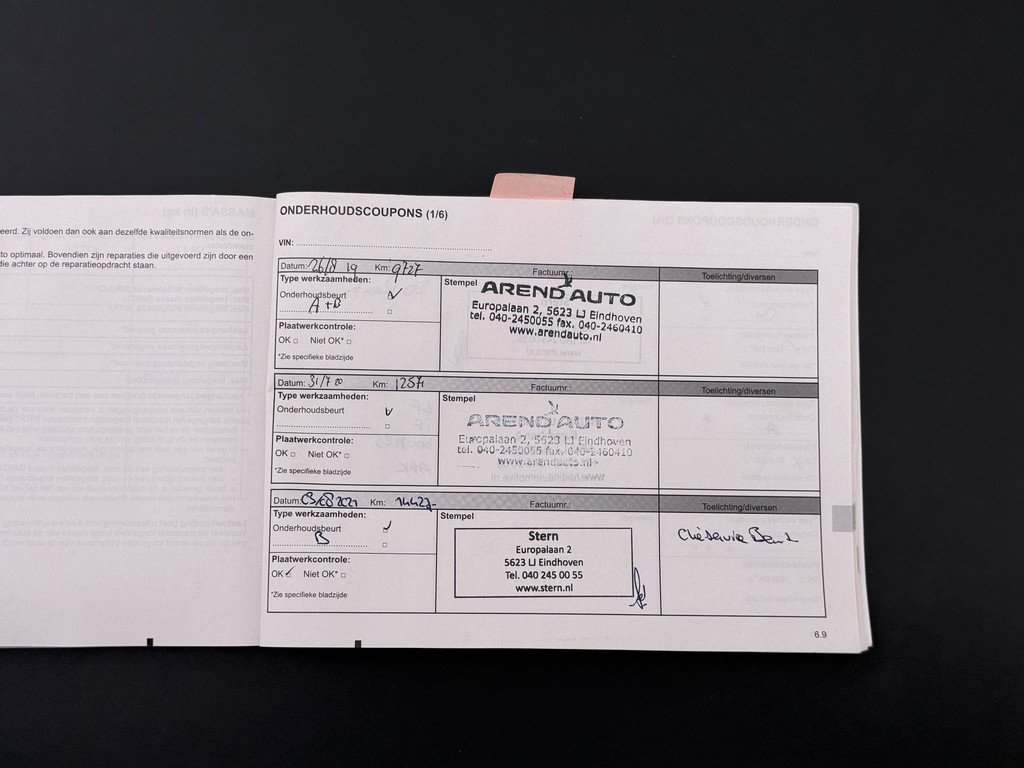 eerd. Zij voldoen dan ook aan dezelfde kwaliteitsnormen als de on-
to optimaal. Bovendien zijn reparaties die uitgevoerd zijn door een
die achter op de reparatieopdracht staan.
ONDERHOUDSCOUPONS (1/6)
VIN:
Datum: 26/8 19 Km: 9727 Factuurnr.: Toelichting/diversen
Type werkzaamheden: Stempel
Onderhoudsbeurt
A+B
Plaatwerkcontrole:
OK Niet OK*
*Zie specifieke bladzijde
AREND AUTO
Europalaan 2, 5623 LJ Eindhoven
tel. 040-2450055 fax. 040-2460410
www.arendauto.nl
Datum: 31/7 Km: Factuurnr.: Toelichting/diversen
Type werkzaamheden: Stempel
Onderhoudsbeurt
Plaatwerkcontrole:
OK Niet OK*
*Zie specifieke bladzijde
AREND AUTO
Europalaan 2, 5623 LJ Eindhoven
tel. 040-2450055 fax. 040-2460410
www.arendauto.nl
Datum: 03/08 2021 Km: 14427- Factuurnr.: Toelichting/diversen
Type werkzaamheden: Stempel
Onderhoudsbeurt
B
Plaatwerkcontrole:
OK Niet OK*
*Zie specifieke bladzijde
Stern
Europalaan 2
5623 LJ Eindhoven
Tel. 040 245 00 55
www.stern.nl
6.9